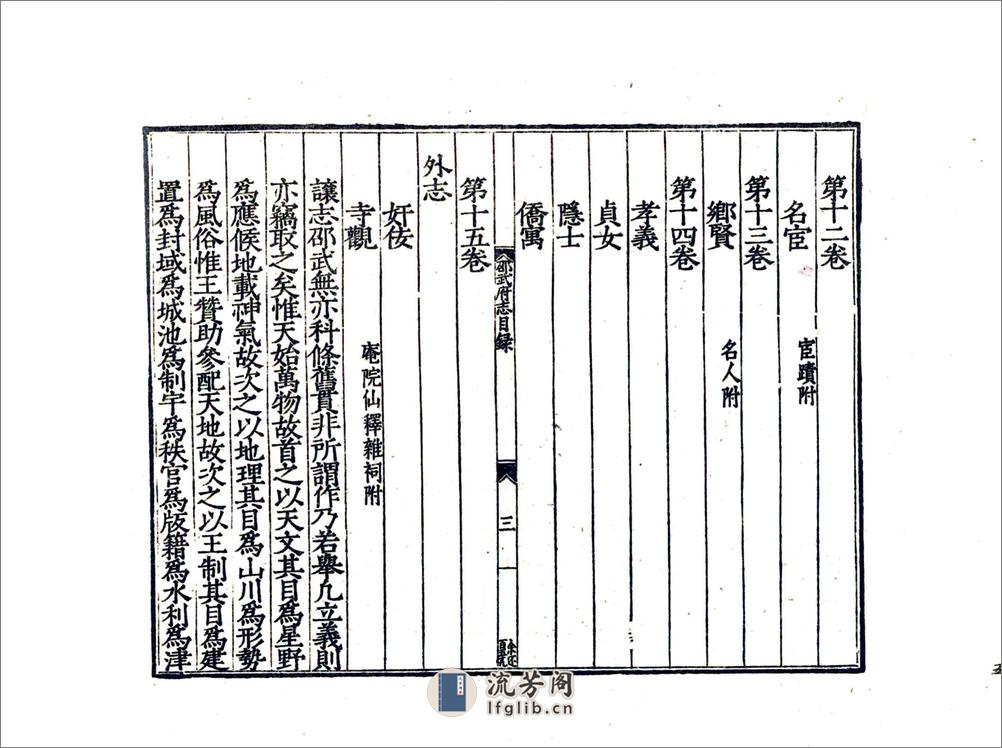 第十二卷
名宦 宦蹟附
第十三卷
鄉賢 名人附
第十四卷
孝義
貞女
隱士
僑寓
邵武府志目録 三
第十五卷
外志
奸佞
寺觀 庵院仙釋雜祠附
讓志邵武無亦科條舊貫非所謂作乃若舉凡立義則
亦竊取之矣惟天始萬物故首之以天文其目爲星野
爲應候地載神氣故次之以地理其目爲山川爲形勢
爲風俗惟王贊助參配天地故次之以王制其目爲建
置爲封域爲城池爲制宇爲秩官爲版籍爲水利爲津
流芳阁
lfglib.cn